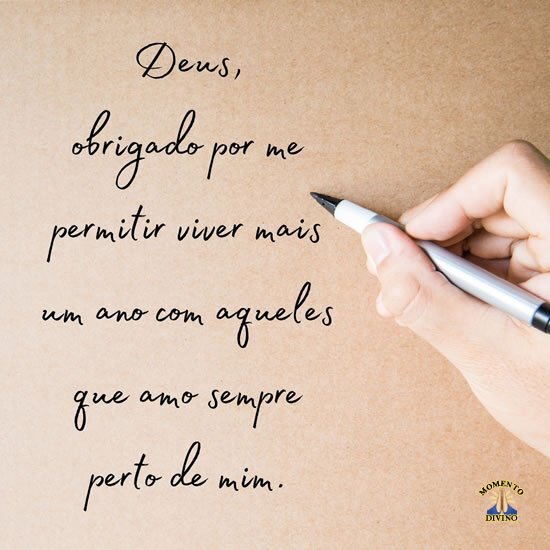 Deus,
obrigado por me
permitir viver mais
um ano com aqueles
que amo sempre
perto de mim.
MOMENTO
DIVINO